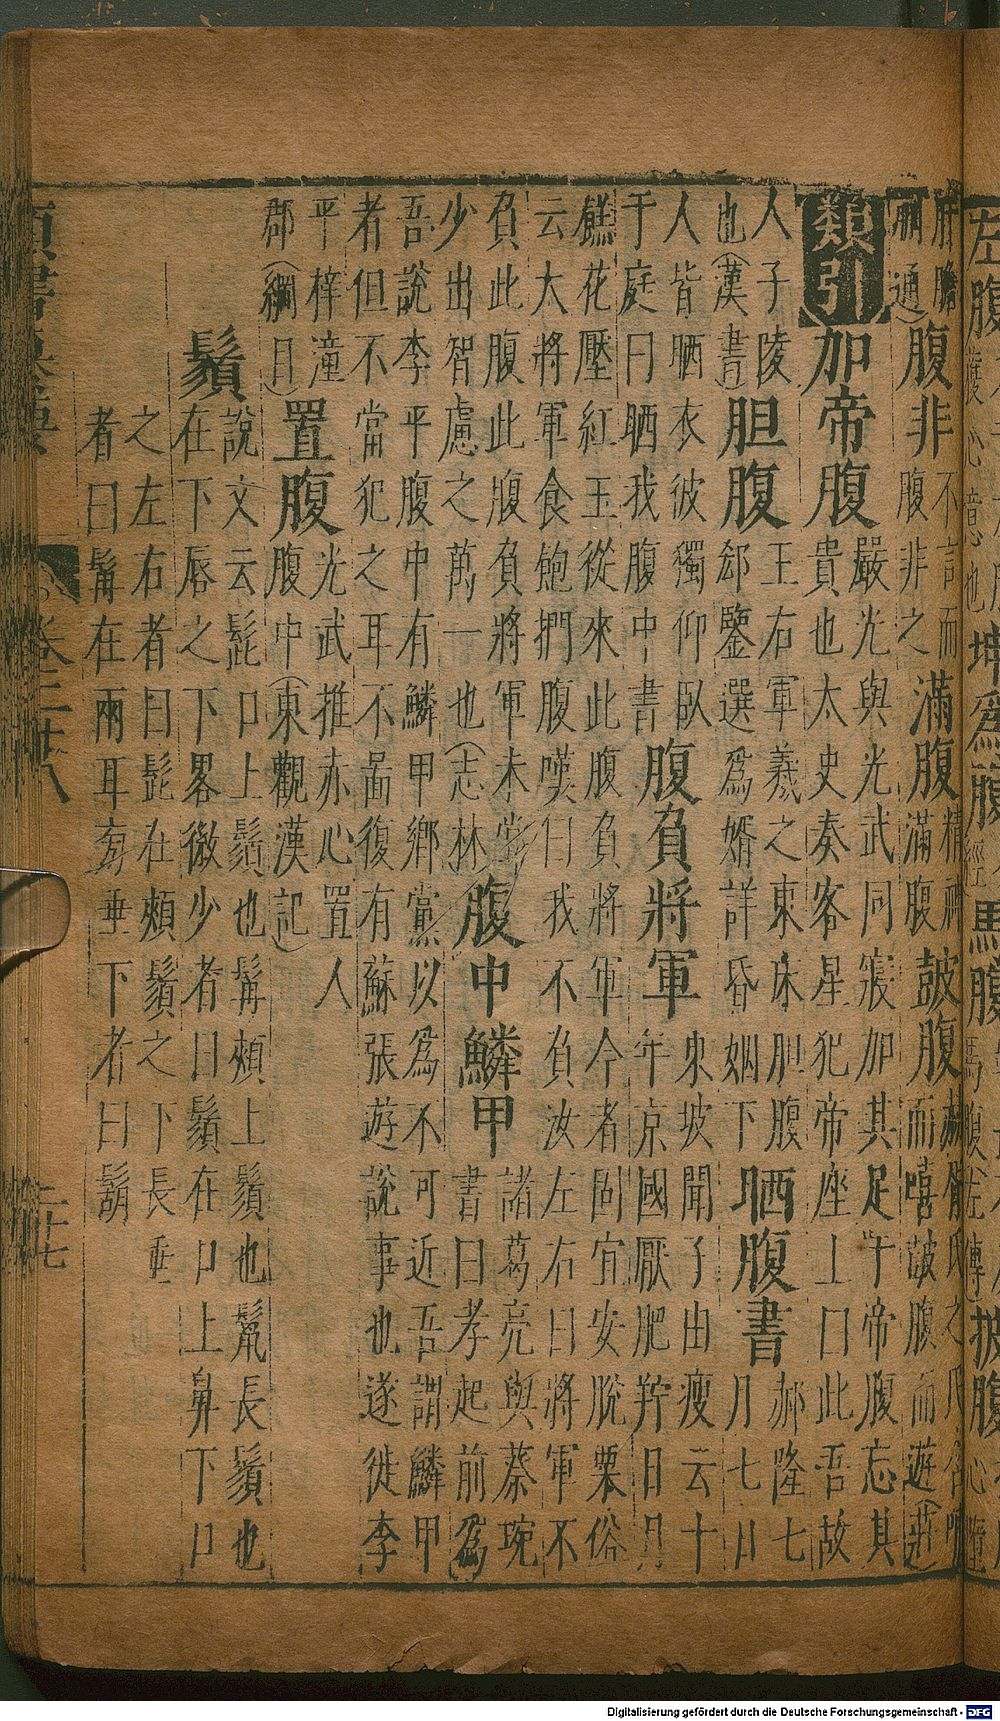 左腹 坤爲腹 馬腹 披腹
肝膽
通)腹非 不言而 腹非之 滿腹 精神 滿腹 鼓腹 赫胥氏之民含哺 而嘻鼓腹而遊(莊
類引 加帝腹 嚴光與光武同寢加其足于帝腹忘其 貴也太史奏客星犯帝座上曰此吾故
人子陵 也(漢書)胆腹 王右軍羲之東床胆腹 郄鑒選爲婿詳昏姻下 晒腹書 郝隆七 月七日
人皆晒衣彼獨仰臥 于庭曰晒我腹中書 腹負將軍 東坡聞子由瘦云十 年京國厭肥羜日月
蘸花壓紅玉從來此腹負將軍今者固宜安脫粟俗
云太將軍食飽捫腹嘆曰我不負汝左右曰將軍不
負此腹此腹負將軍未嘗 少出智慮之萬一也(志林)腹中鱗甲 諸葛亮與蔡琬 書曰孝起前爲
吾說李平腹中有鱗甲鄉黨以爲不可近吾謂鱗甲
者但不當犯之耳不啚復有蘇張遊說事也遂徙李
平梓潼 郡(綱目)置腹 光武推赤心置人 腹中(東觀漢記)
鬚 說文云髭口上鬚也髯頰上鬚也鬛長鬚也 在下唇之下畧微少者曰鬚在口上鼻下口
之左右者曰髭在頰鬚之下長垂
者曰髯在兩耳旁垂下者曰鬍
卷之廿八 二十七
Digitalisierung gefördert durch die Deutsche Forschungsgemeinschaft - DFG